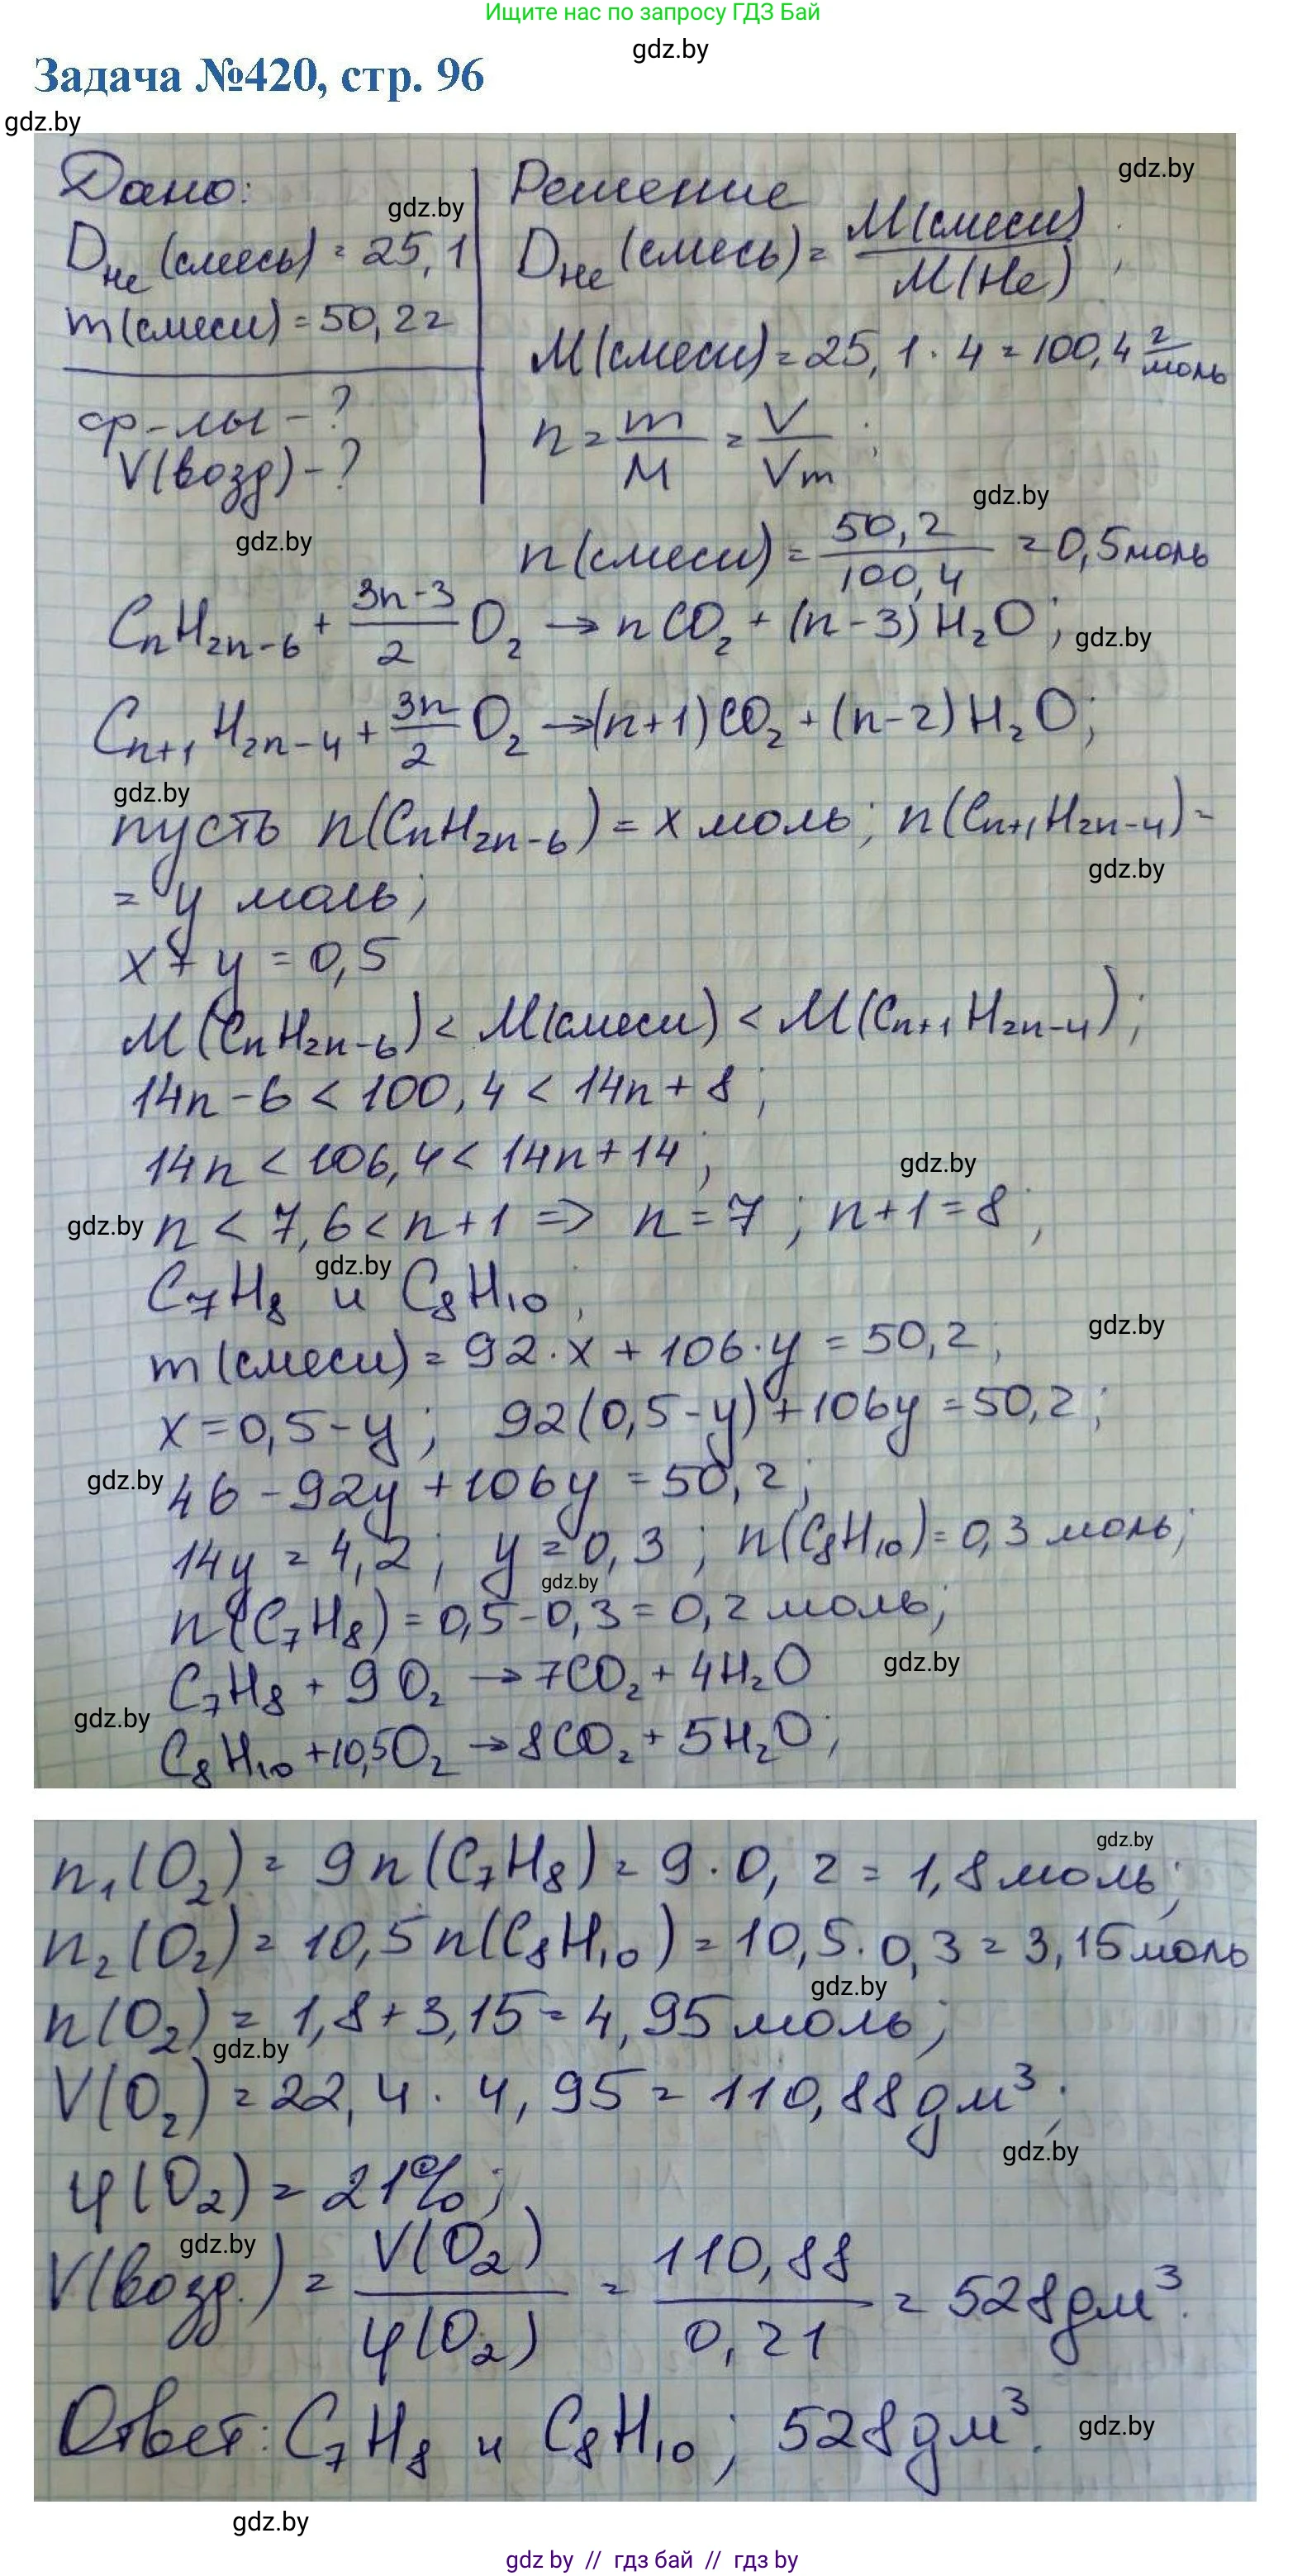 Ищите нас по запросу ГДЗ Бай
gdz.by
Задача №420, стр. 96
gdz.by
Дано:
D_He (смесь) = 25,1
m(смеси) = 50,2 г
ф-лы - ?
V(возд) - ?
gdz.by
gdz.by
Решение
gdz.by
D_He (смесь) = M(смеси) / M(He) ;
M(смеси) = 25,1 · 4 = 100,4 г/моль
n = m/M = V/Vm ;
gdz.by
n(смеси) = 50,2 / 100,4 = 0,5 моль
CnH2n-6 + (3n-3)/2 O2 → nCO2 + (n-3)H2O ;
gdz.by
Cn+1H2n-4 + 3n/2 O2 → (n+1)CO2 + (n-2)H2O ;
gdz.by
пусть n(CnH2n-6) = x моль ; n(Cn+1H2n-4) =
gdz.by
= y моль ;
x + y = 0,5
M(CnH2n-6) < M(смеси) < M(Cn+1H2n-4) ;
14n - 6 < 100,4 < 14n + 8 ;
14n < 106,4 < 14n + 14 ;
gdz.by
gdz.by
n < 7,6 < n+1 => n = 7 ; n+1 = 8 ;
gdz.by
C7H8 и C8H10 ;
gdz.by
m(смеси) = 92 · x + 106 · y = 50,2 ;
x = 0,5 - y ; 92(0,5 - y) + 106y = 50,2 ;
gdz.by
46 - 92y + 106y = 50,2 ;
14y = 4,2 ; y = 0,3 ; n(C8H10) = 0,3 моль ;
gdz.by
n(C7H8) = 0,5 - 0,3 = 0,2 моль ;
gdz.by
C7H8 + 9O2 → 7CO2 + 4H2O
gdz.by
C8H10 + 10,5O2 → 8CO2 + 5H2O ;
gdz.by
n1(O2) = 9n(C7H8) = 9 · 0,2 = 1,8 моль ;
n2(O2) = 10,5n(C8H10) = 10,5 · 0,3 = 3,15 моль
gdz.by
n(O2) = 1,8 + 3,15 = 4,95 моль ;
gdz.by
V(O2) = 22,4 · 4,95 = 110,88 дм³ ;
gdz.by
φ(O2) = 21% ;
gdz.by
V(возд.) = V(O2) / φ(O2) = 110,88 / 0,21 = 528 дм³.
Ответ: C7H8 и C8H10 ; 528 дм³.
gdz.by
gdz.by
gdz by // гдз бай // гдз by